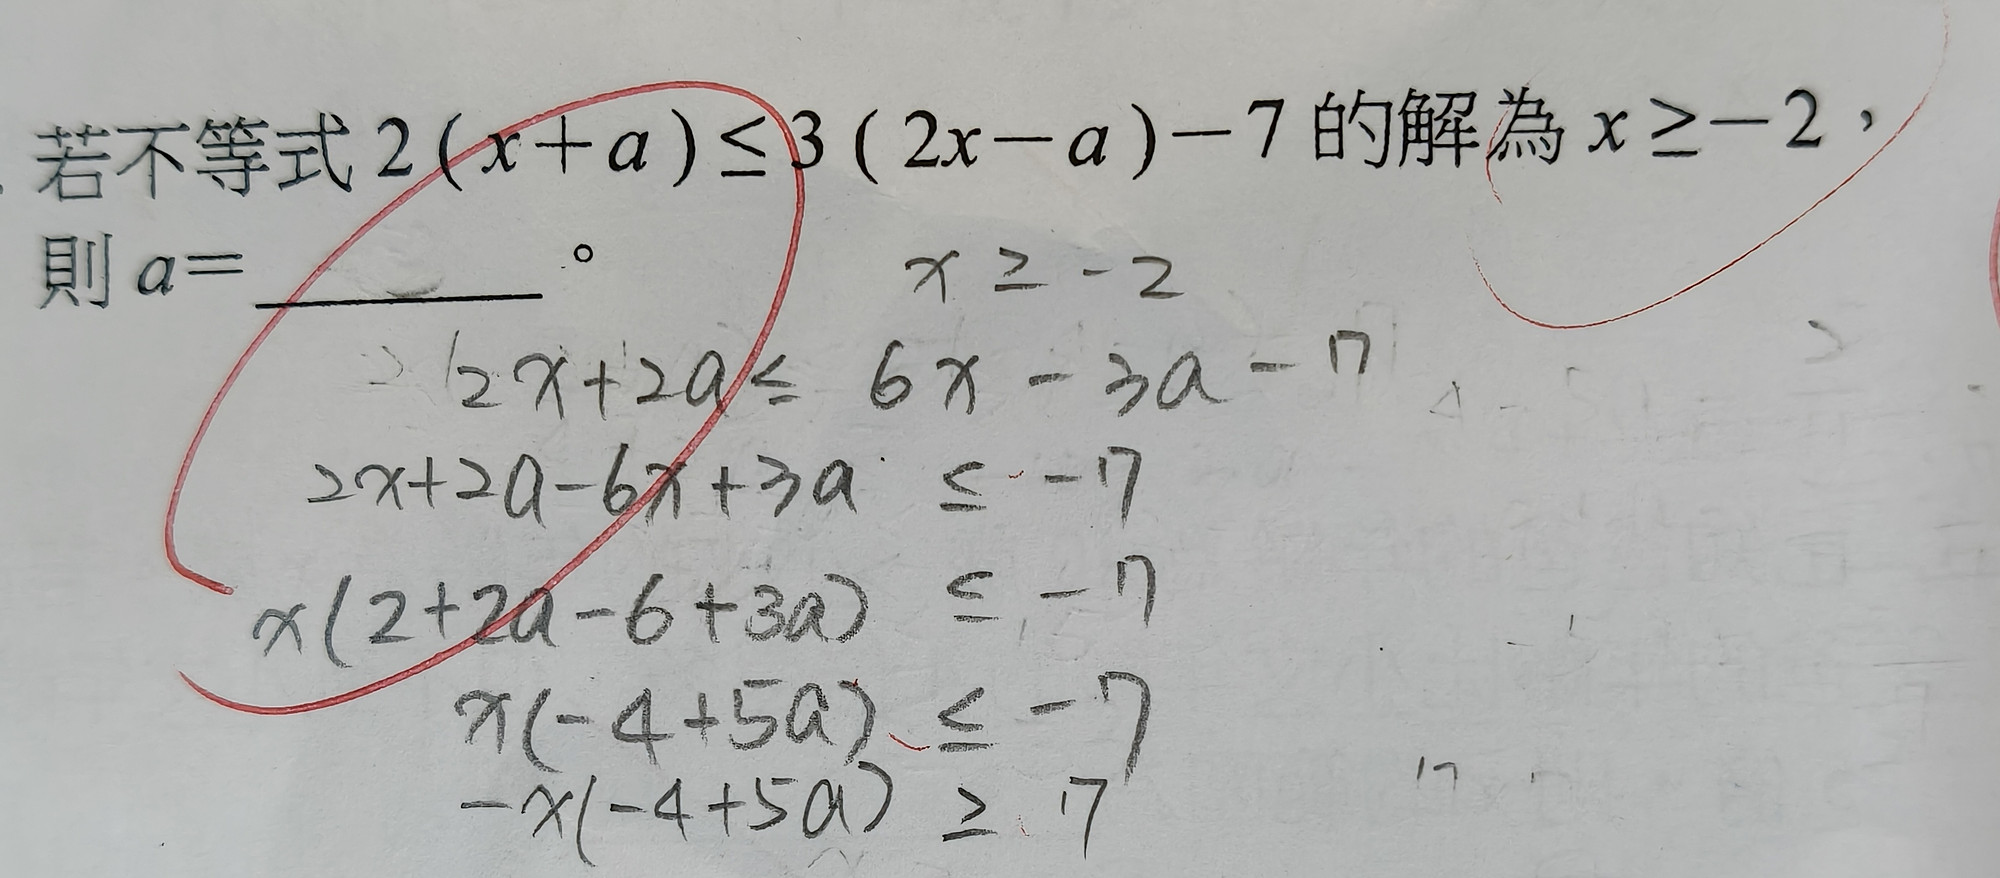 若不等式 2(x+a)≤3(2x-a)-7 的解為 x≥-2,
則 a=______。
x ≥ -2
2x+2a ≤ 6x - 3a - 7
2x+2a-6x+3a ≤ -7
x(2+2a-6+3a) ≤ -7
x(-4+5a) ≤ -7
-x(-4+5a) ≥ 7